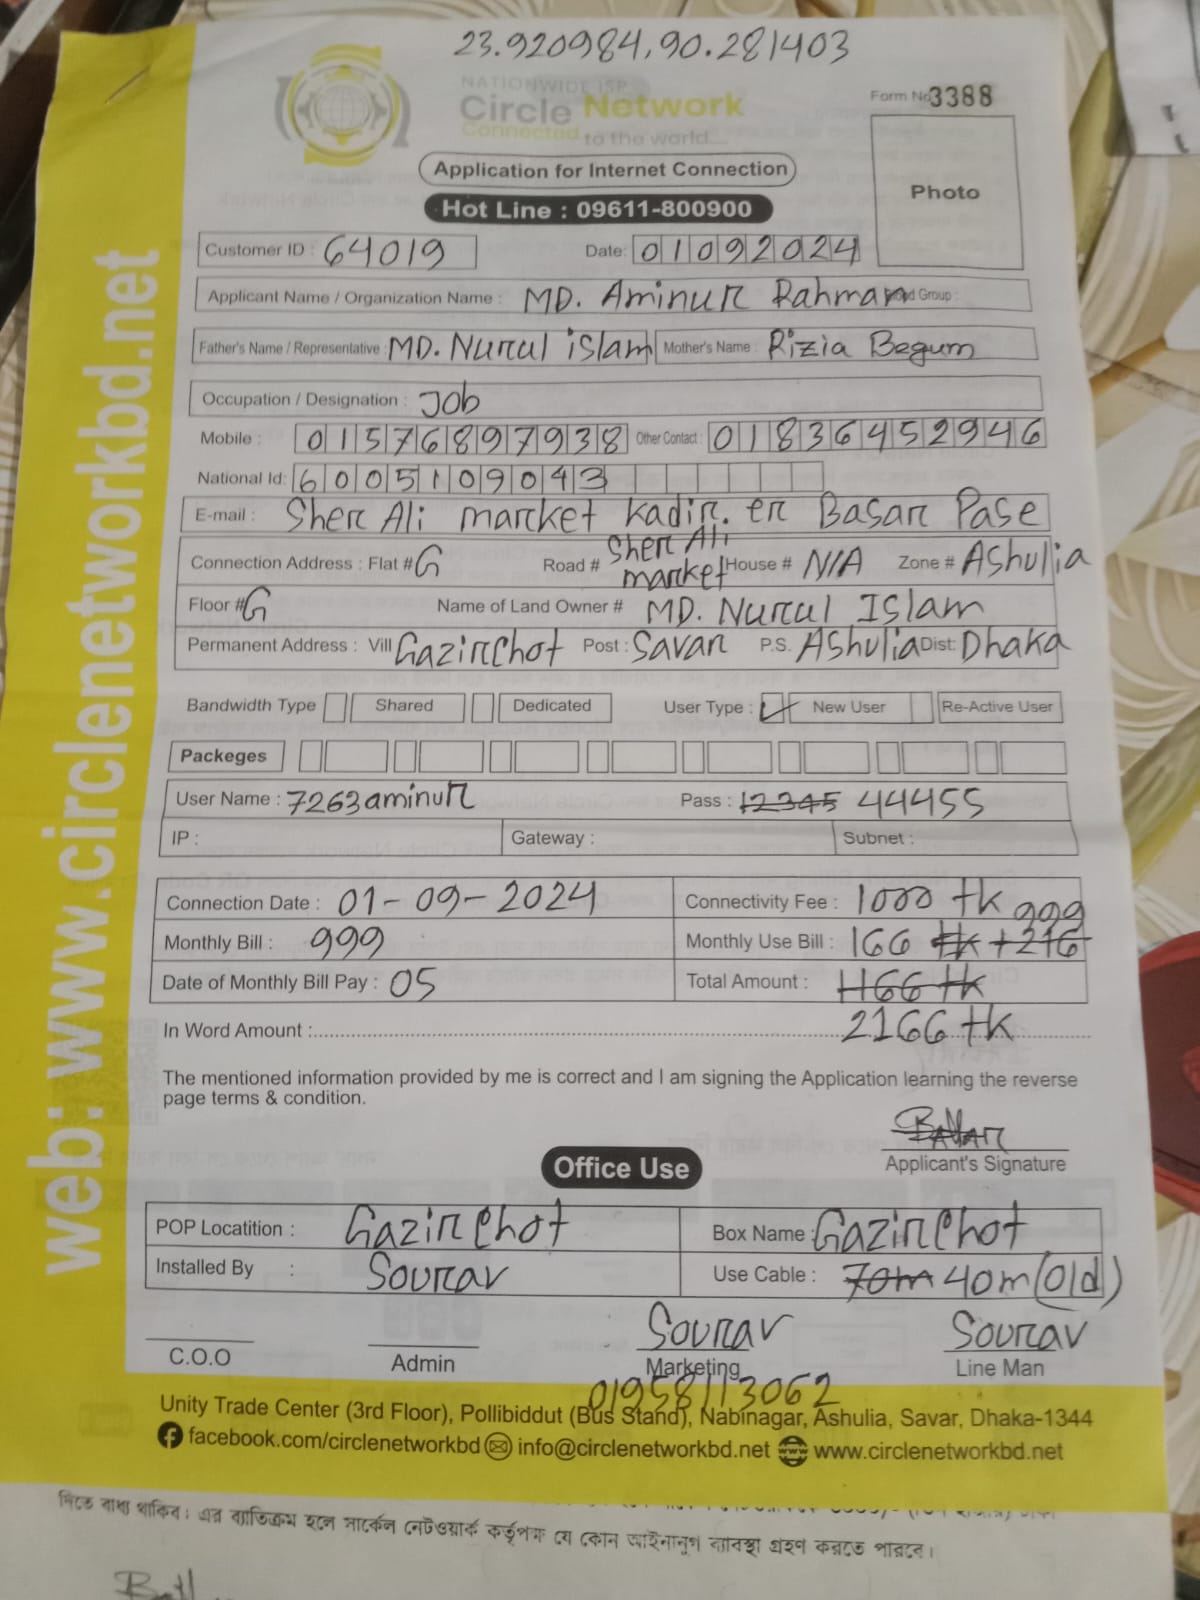 23.920984,90.281403
NATIONWIDE ISP
Circle Network
Connected to the world...
Form No 3388
Application for Internet Connection
Photo
Hot Line : 09611-800900
Customer ID : 64019 Date: 01092024
Applicant Name / Organization Name : MD. Aminur Rahman Blood Group :
Father's Name / Representative : MD. Nurul islam Mother's Name : Rizia Begum
Occupation / Designation : Job
Mobile : 01576897938 Other Contact : 01836452946
National Id: 6005109043
E-mail : Sher Ali market kadir. er Basar Pase
Connection Address : Flat # G Road # Sher Ali market House # N/A Zone # Ashulia
Floor # G Name of Land Owner # MD. Nurul Islam
Permanent Address : Vill Gazirchot Post : Savar P.S. Ashulia Dist: Dhaka
Bandwidth Type Shared Dedicated User Type : ✓ New User Re-Active User
Packeges
User Name : 7263aminur Pass : 12345 44455
IP : Gateway : Subnet :
Connection Date : 01-09-2024 Connectivity Fee : 1000 tk
Monthly Bill : 999 Monthly Use Bill : 166 tk +216 999
Date of Monthly Bill Pay : 05 Total Amount : 1166 tk
In Word Amount : 2166 tk
The mentioned information provided by me is correct and I am signing the Application learning the reverse
page terms & condition.
Applicant's Signature
Office Use
POP Locatition : Gazirchot Box Name : Gazirchot
Installed By : Sourav Use Cable : 70m 40m (old)
Sourav Sourav
C.O.O Admin Marketing Line Man
01958113062
Unity Trade Center (3rd Floor), Pollibiddut (Bus Stand), Nabinagar, Ashulia, Savar, Dhaka-1344
facebook.com/circlenetworkbd info@circlenetworkbd.net www.circlenetworkbd.net
web: www.circlenetworkbd.net
দিতে বাধ্য থাকিব। এর ব্যতিক্রম হলে সার্কেল নেটওয়ার্ক কর্তৃপক্ষ যে কোন আইনানুগ ব্যবস্থা গ্রহণ করতে পারবে।